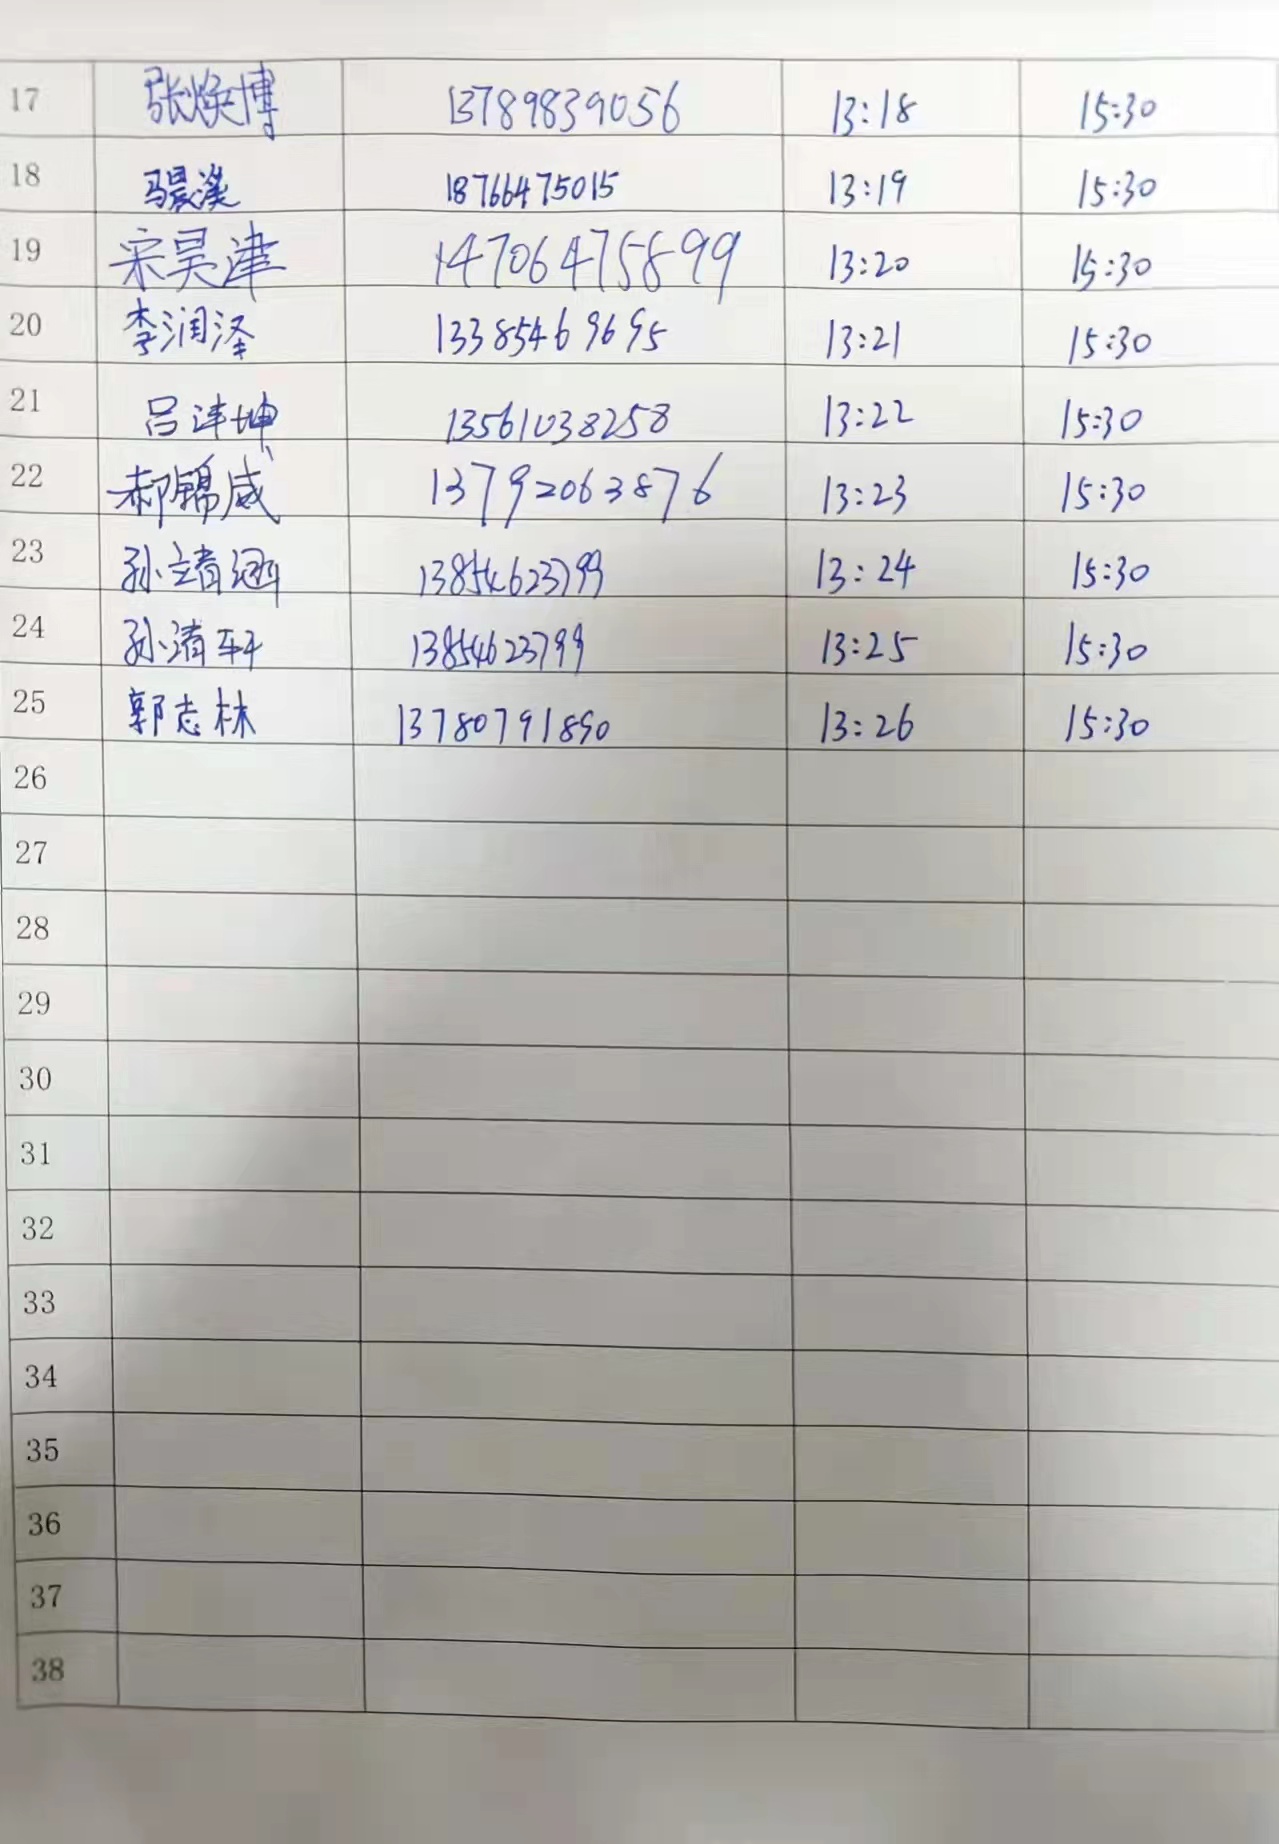 17 张焕博 13789839056 13:18 15:30
18 马晨溪 18766475015 13:19 15:30
19 宋昊津 14706475899 13:20 15:30
20 李润泽 13385469695 13:21 15:30
21 吕沣坤 13561038258 13:22 15:30
22 郝锦威 13792063876 13:23 15:30
23 孙靖涵 13854623799 13:24 15:30
24 孙清轩 13854623799 13:25 15:30
25 郭志林 13780791890 13:26 15:30
26
27
28
29
30
31
32
33
34
35
36
37
38